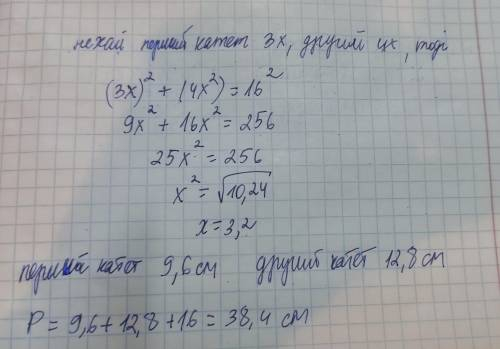 нехай перший катет 3x, другий 4x, тоді
(3x)² + (4x²) = 16²
9x² + 16x² = 256
25x² = 256
x² = √10,24
x = 3,2
перший катет 9,6 см другий катет 12,8 см
P = 9,6 + 12,8 + 16 = 38,4 см